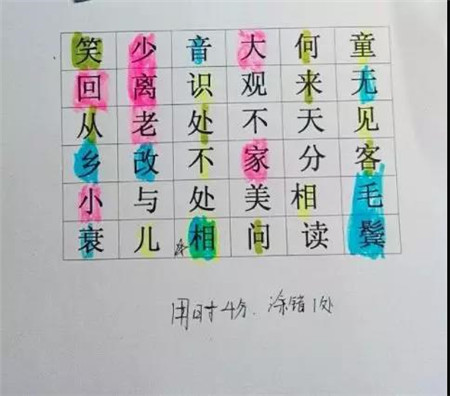 笑 少 音 大 何 童
回 离 识 观 来 无
从 老 处 不 天 见
乡 改 不 家 分 客
小 与 处 美 相 毛
衰 儿 相 问 读 鬓
用时4分、涂错1处